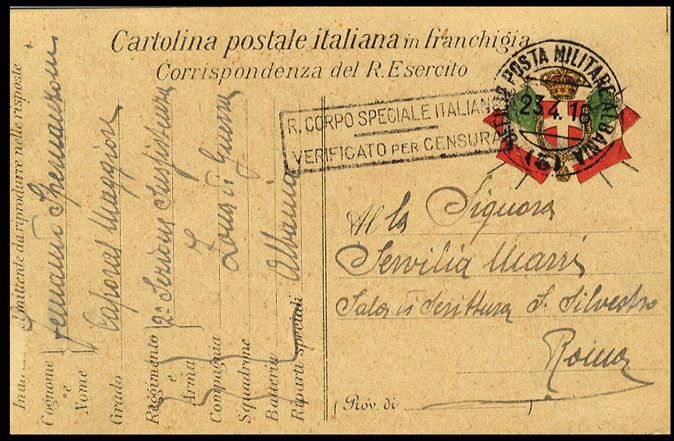 Cartolina postale italiana in franchigia
Corrispondenza del R. Esercito
R. CORPO SPECIALE ITALIANO
VERIFICATO PER CENSURA
POSTA MILITARE ALBANIA
23.4.16
(3)
Alla Signora
Servilia Marri
Sala di Scrittura S. Silvestro
Roma
(Prov. di )
mittente da riprodurre nelle risposte
Cognome e Nome
Grado Caporal Maggiore
Reggimento e Arma 2ª Sezione Sussistenza
Compagnia
Squadrone Zona di Guerra
Batteria
Riparti speciali Albania